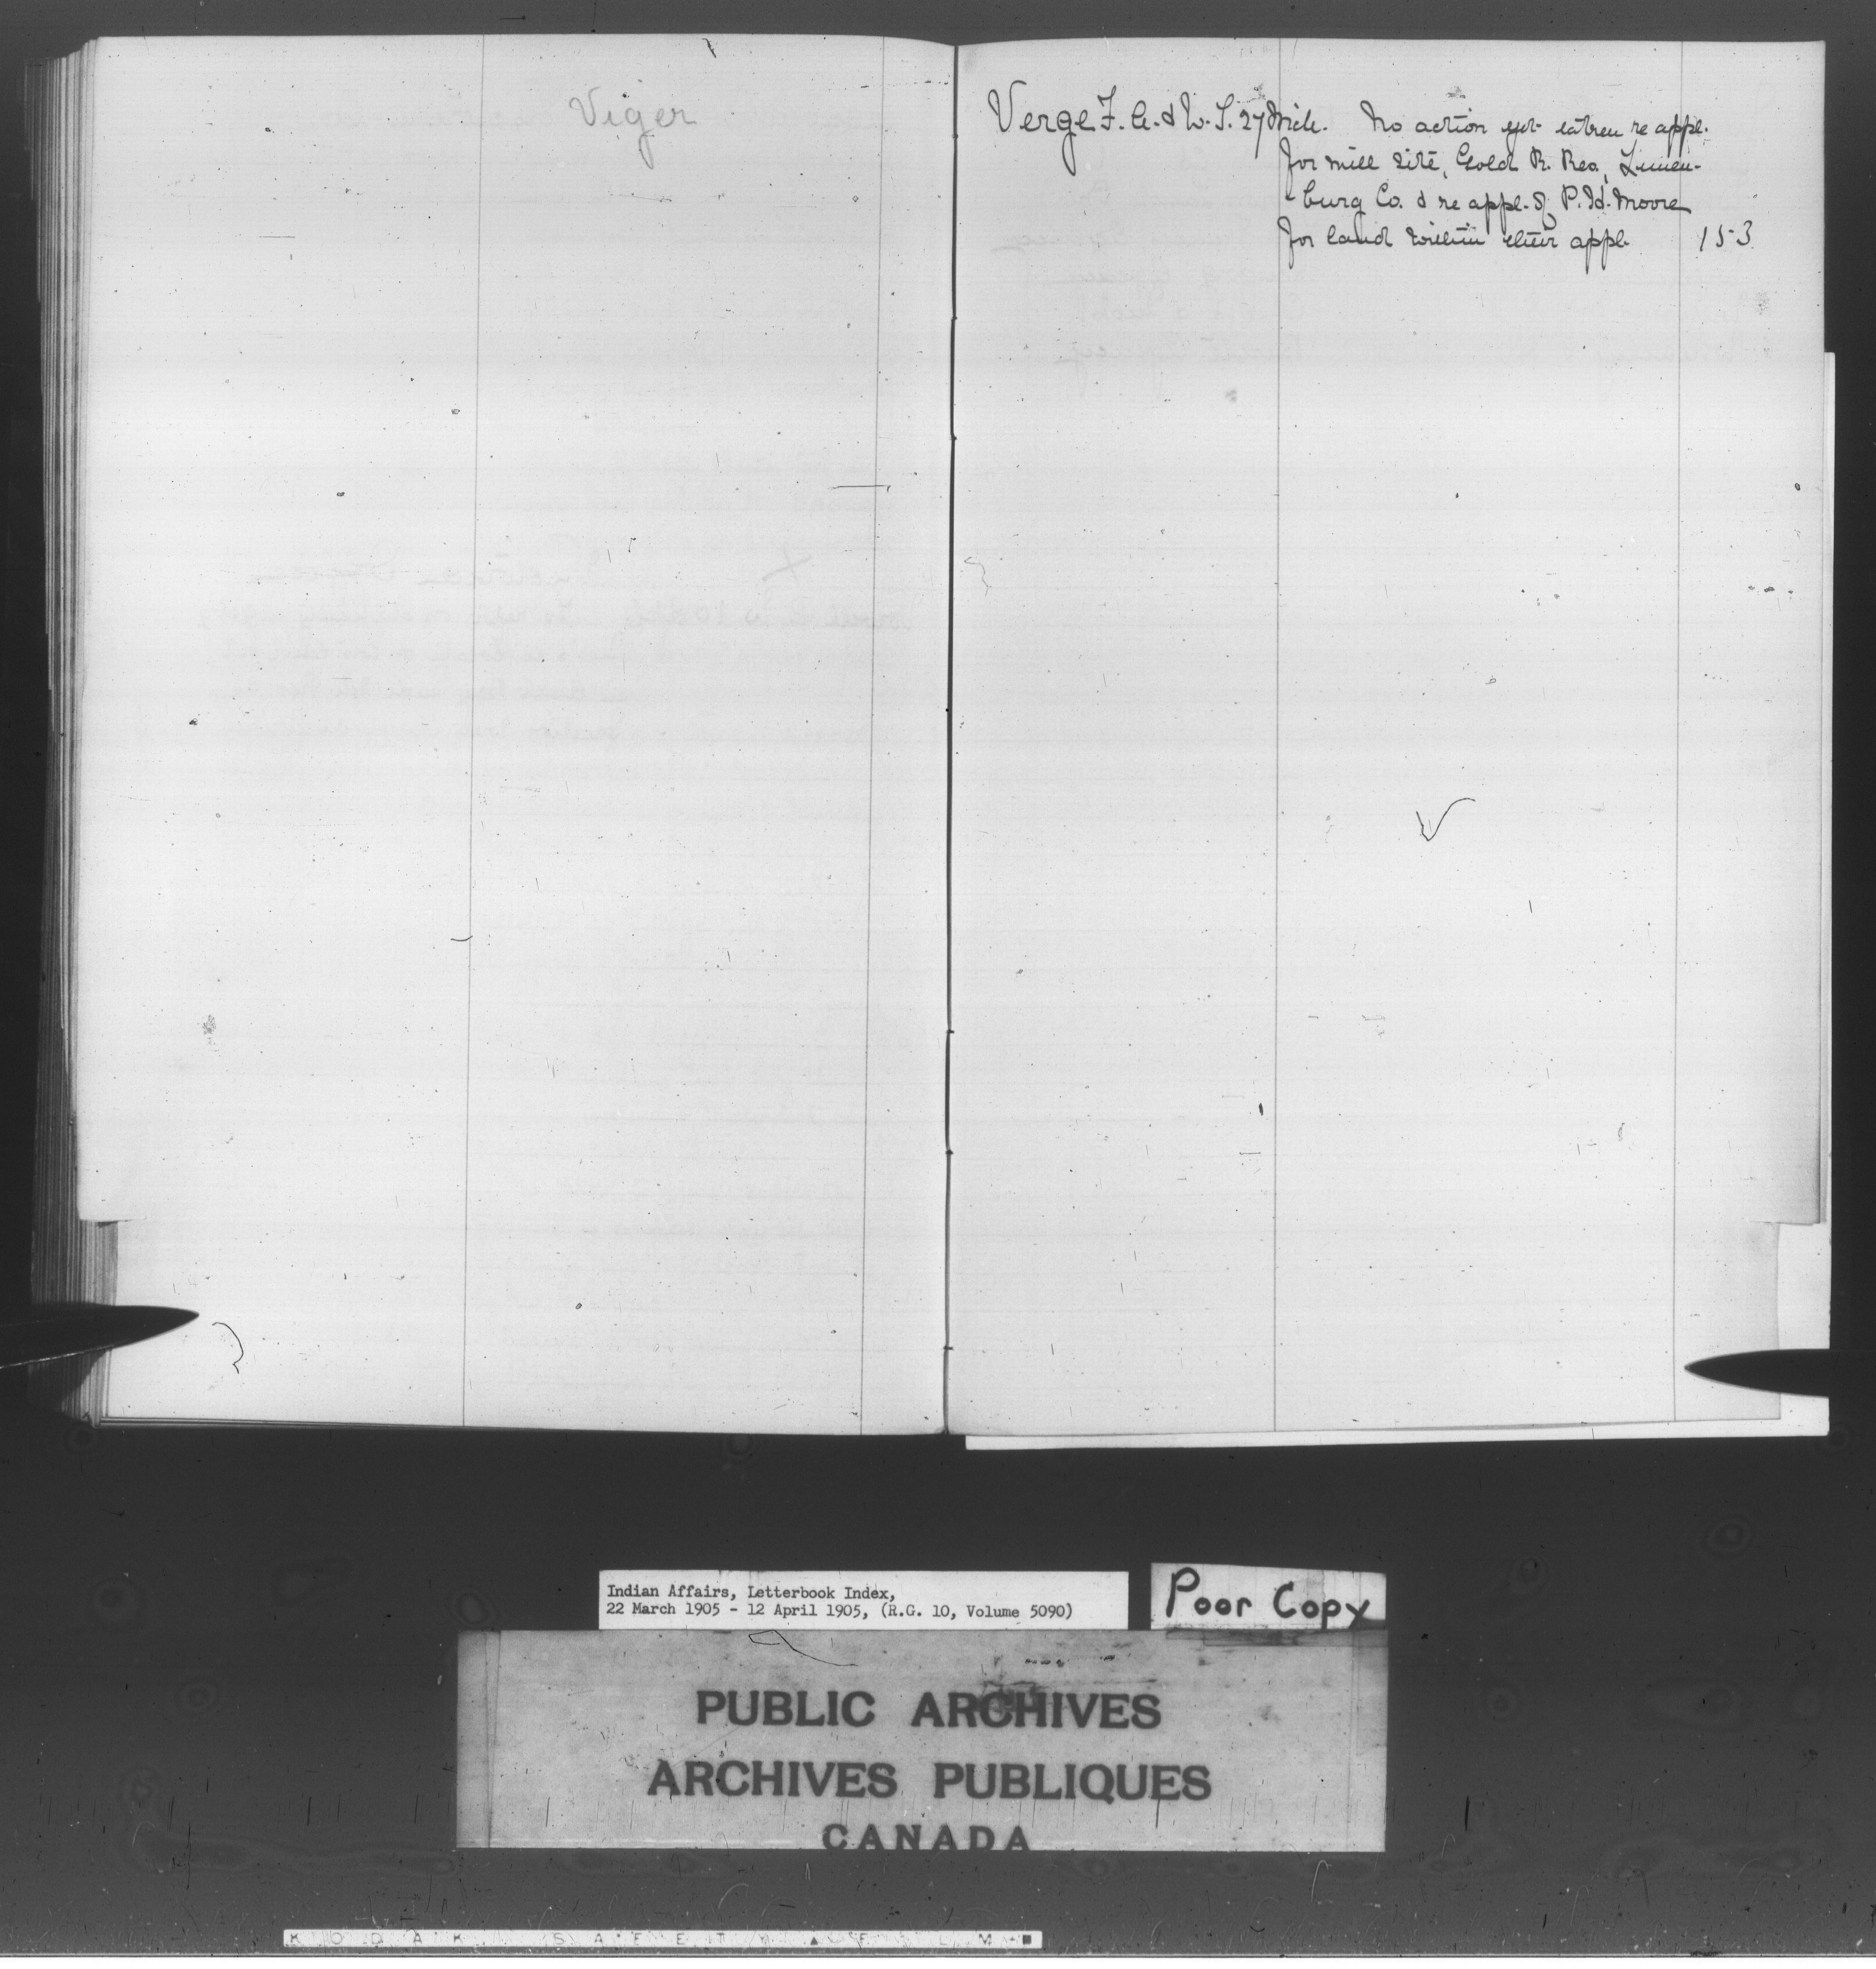 Viger
Verge F. A. & W. S. 27 Mch. No action yet taken re appl.
for mill site, Gold R. Res, Lunen-
burg Co. & re appl. of P. H. Moore
for land within their appl. 153
Indian Affairs, Letterbook Index,
22 March 1905 - 12 April 1905, (R.G. 10, Volume 5090)
Poor Copy
PUBLIC ARCHIVES
ARCHIVES PUBLIQUES
CANADA
KODAK SAFETY FILM